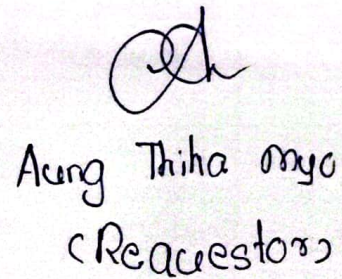 Aung Thiha Myo
(Reacuestor)